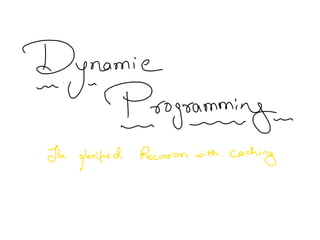 Dynamic
Programming
The glorified Recursion with caching